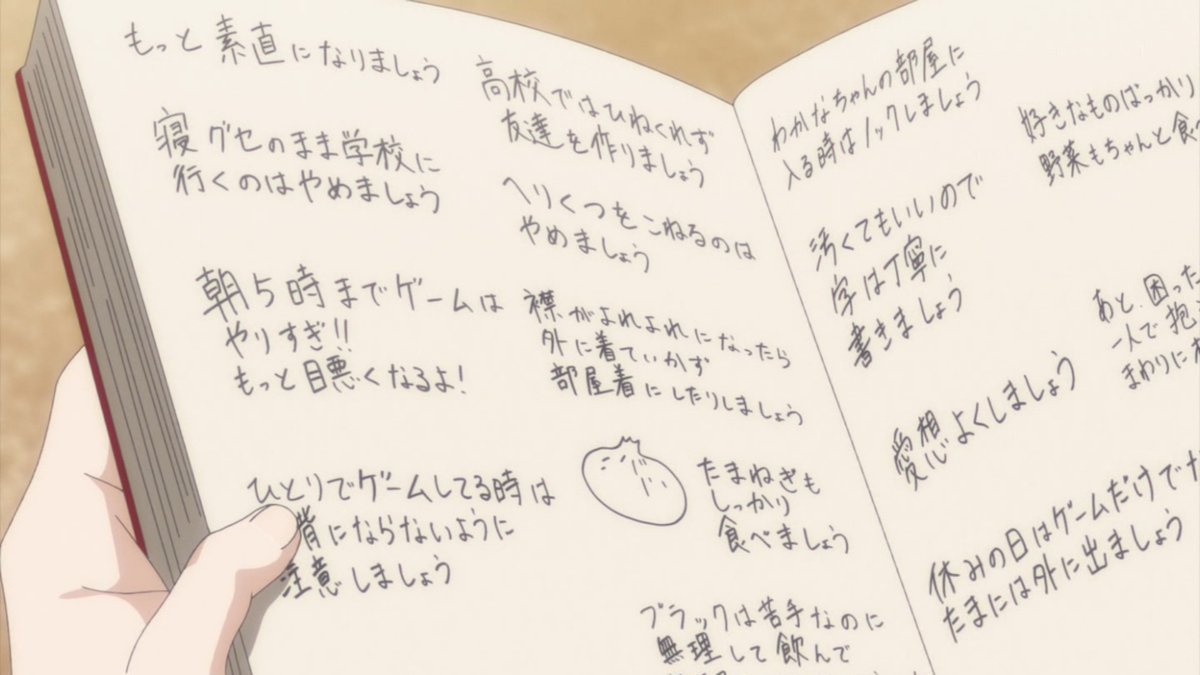 もっと素直になりましょう
寝グセのまま学校に
行くのはやめましょう
朝5時までゲームは
やりすぎ!!
もっと目悪くなるよ!
ひとりでゲームしてる時は
背にならないように
注意しましょう
高校ではひねくれず
友達を作りましょう
へりくつをこねるのは
やめましょう
襟がよれよれになったら
外に着ていかず
部屋着にしたりしましょう
たまねぎも
しっかり
食べましょう
ブラックは苦手なのに
無理して飲んで
わかなちゃんの部屋に
入る時はノックしましょう
汚くてもいいので
字は丁寧に
書きましょう
愛想よくしましょう
休みの日はゲームだけでな
たまには外に出ましょう
好きなものばっかり
野菜もちゃんと食
あと、困った
一人で抱
まわりに